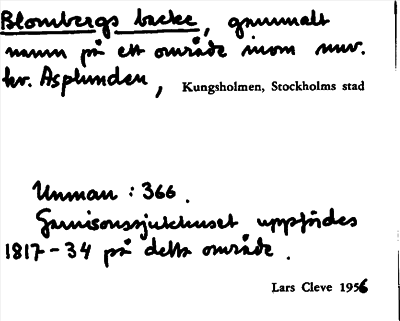 Blombergs backe, gammalt
namn på ett område inom nuv.
kv. Asplunden,
Kungsholmen, Stockholms stad
Unman : 366.
Garnisonssjukhuset uppfördes
1817-34 på detta område.
Lars Cleve 1956